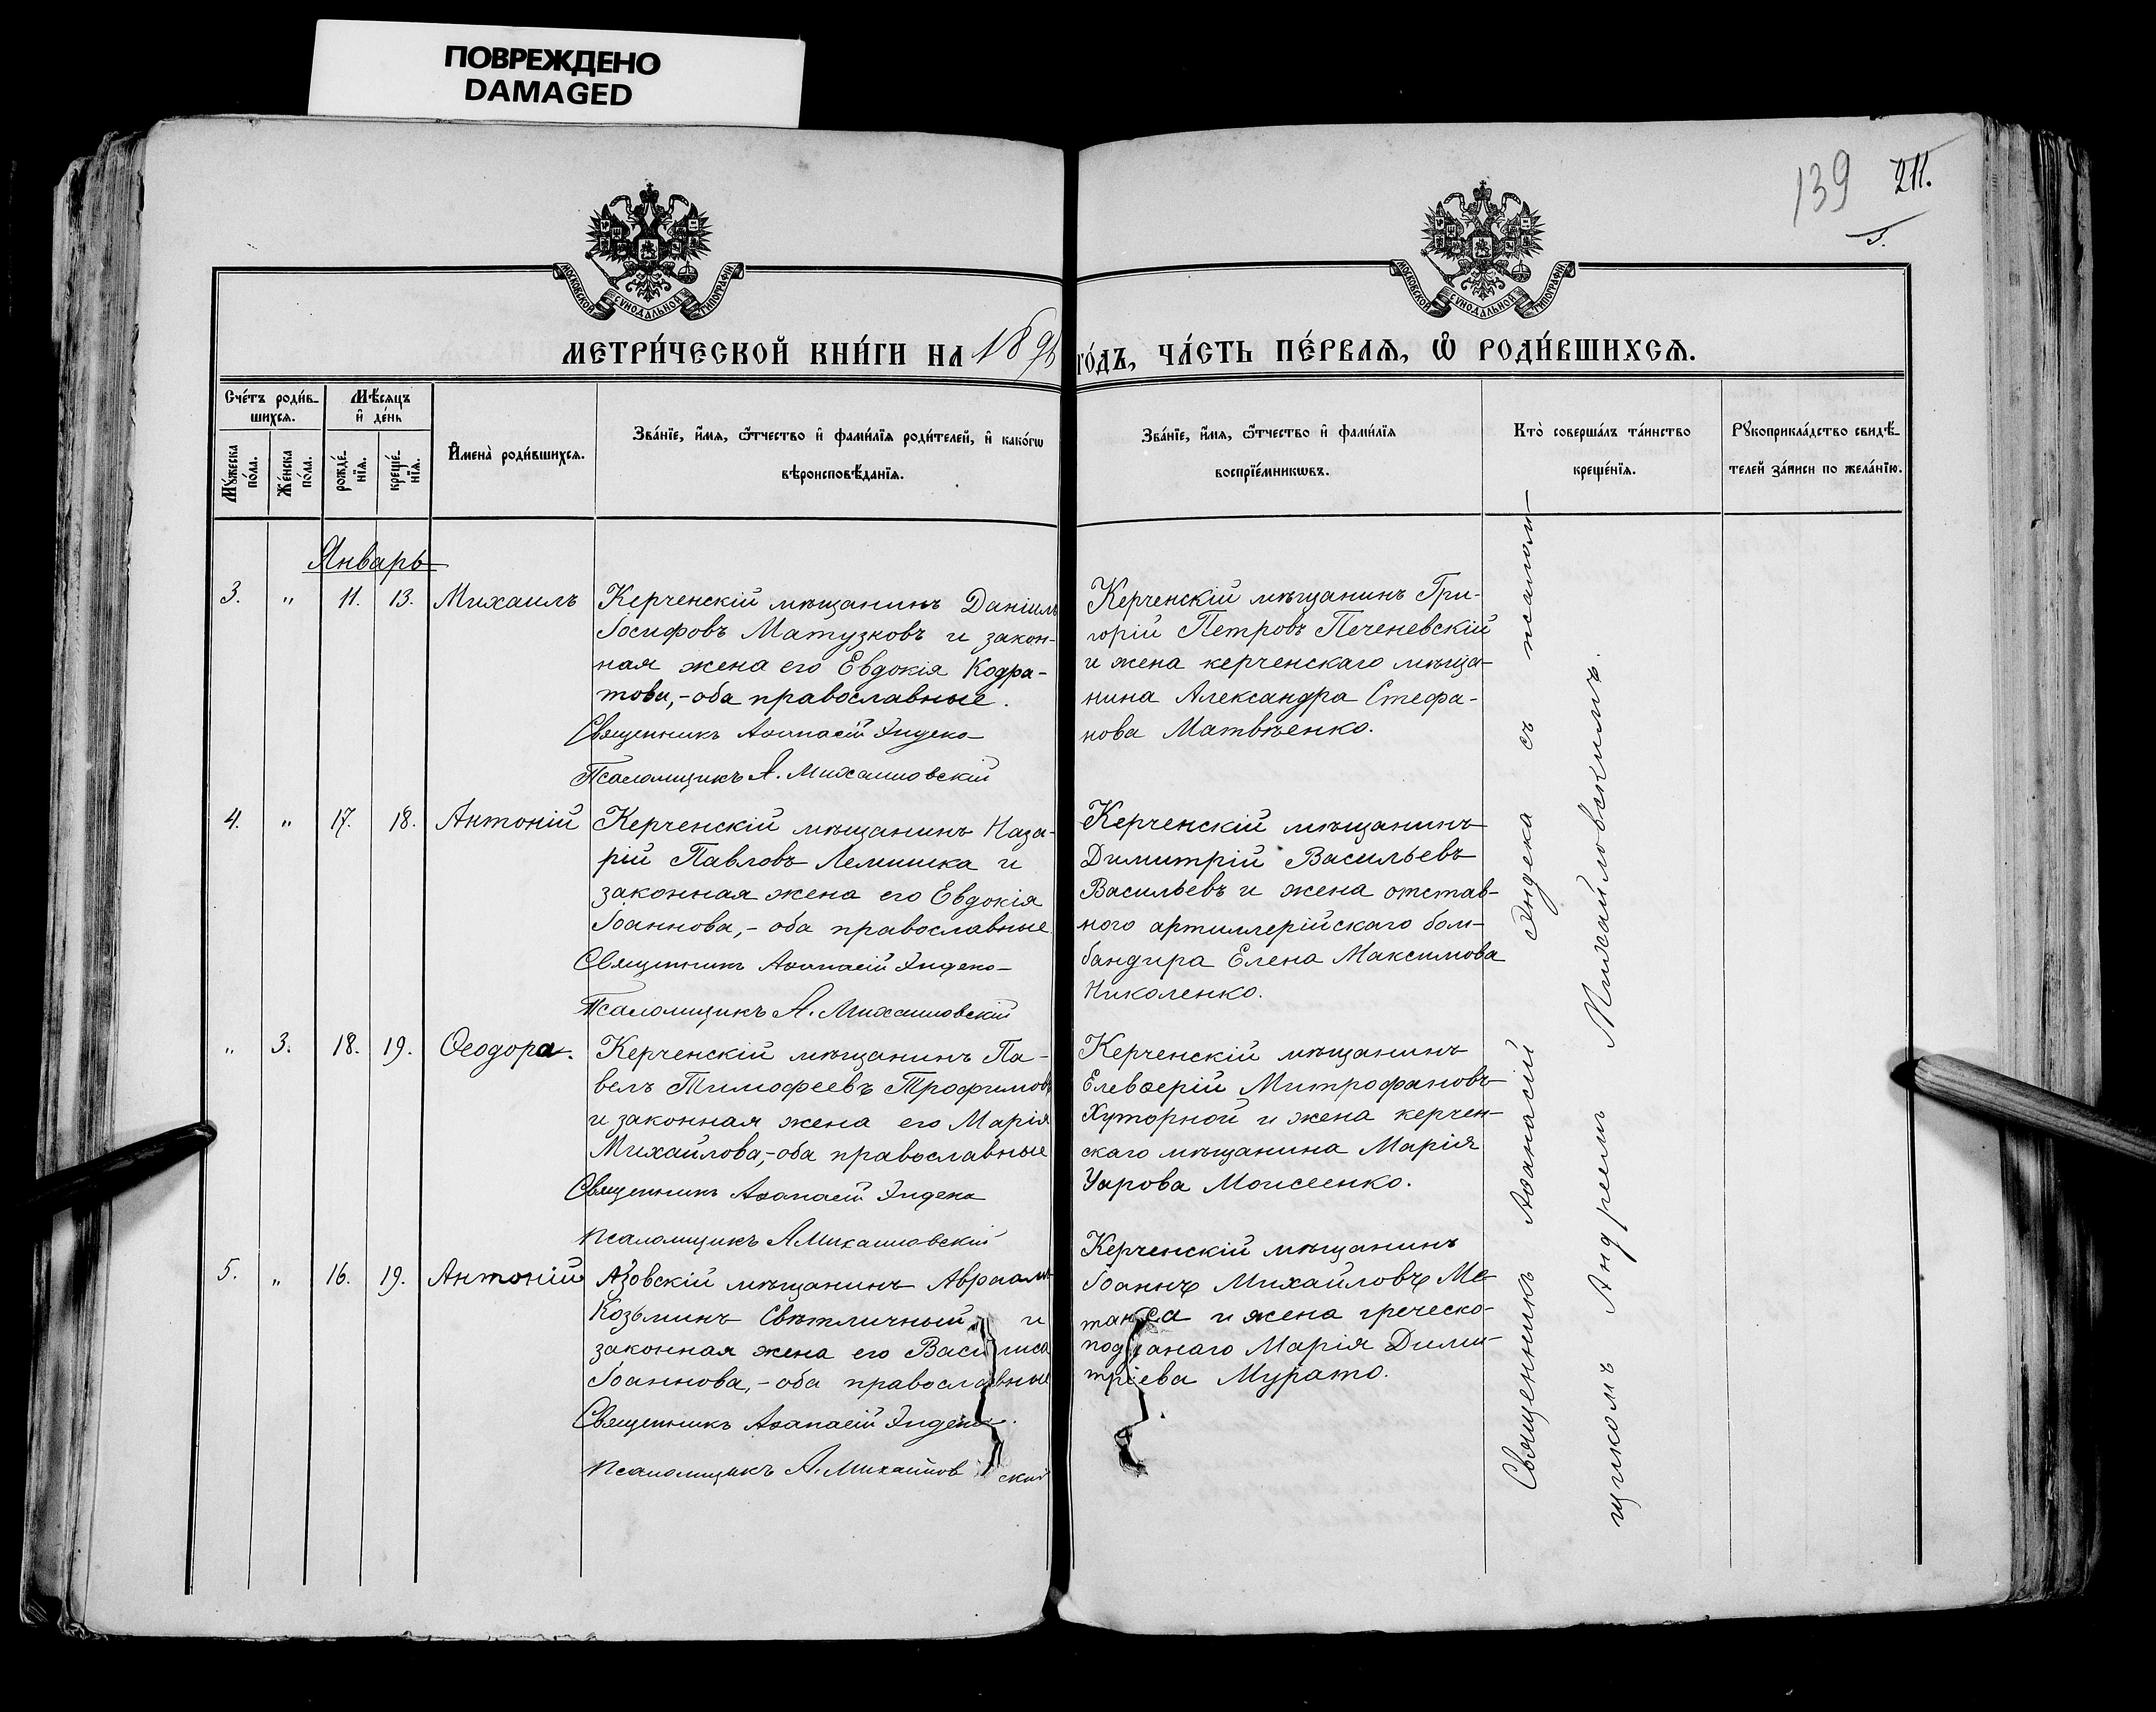 ПОВРЕЖДЕНО
DAMAGED
139 211.
МОСКОВСКОЙ СѴНОДАЛЬНОЙ ТИПОГРАФІИ
МОСКОВСКОЙ СѴНОДАЛЬНОЙ ТИПОГРАФІИ
МЕТРИ́ЧЕСКОЙ КНИ́ГИ НА 189
ГО́ДЪ, ЧА́СТЬ ПЕ́РВАѦ, Ѽ РОДИ́ВШИХСѦ.
Сче́тъ роди́в-
шихсѧ.
Мѣ́сѧцъ
и҆ де́нь
Мꙋ́жеска по́ла.
Же́нска по́ла.
рожде́-нїѧ.
креще́-нїѧ.
И҆мена̀ роди́вшихсѧ.
Зва́нїе, и҆́мѧ, ѻ҆́тчество и҆ фами́лїѧ роди́телей, и҆ како́гѡ
вѣроисповѣ́данїѧ.
Зва́нїе, и҆́мѧ, ѻ҆́тчество и҆ фами́лїѧ
воспрїе́мникѡвъ.
Кто̀ соверша́лъ та́инство
креще́нїѧ.
Рꙋкоприкла́дство свидѣ́-
телей за́писи по жела́нїю.
Январь
3. " 11. 13. Михаилъ
Керченскій мѣщанинъ Даніилъ
Іосифовъ Матузковъ и закон-
ная жена его Евдокія Кодра-
това,- оба православные.
Священникъ Аѳанасій Эндека
Псаломщикъ А. Михайловскій
Керченскій мѣщанинъ Гри-
горій Петровъ Печеневскій
и жена керченскаго мѣща-
нина Александра Стефа-
нова Матвѣенко.
4. " 17. 18. Антоній
Керченскій мѣщанинъ Наза-
рій Павловъ Лемишка и
законная жена его Евдокія
Іоаннова,- оба православные
Священникъ Аѳанасій Эндека
Псаломщикъ А. Михайловскій
Керченскій мѣщанинъ
Димитрій Васильевъ
Васильевъ и жена отстав-
ного артиллерійскаго бом-
бандира Елена Максимова
Николенко.
" 3. 18. 19. Ѳеодора.
Керченскій мѣщанинъ Па-
велъ Тимофеевъ Трофимовъ
и законная жена его Марія
Михайлова,- оба православные
Священникъ Аѳанасій Эндека
Псаломщикъ А Михайловскій
Керченскій мѣщанинъ
Елевѳерій Митрофановъ
Хуторной и жена керчен-
скаго мѣщанина Марія
Уарова Моисеенко.
5. " 16. 19. Антоній
Азовскій мѣщанинъ Авраамъ
Козьминъ Свѣтличный и
законная жена его Василиса
Іоаннова,- оба православные
Священникъ Аѳанасій Эндека.
Псаломщикъ А. Михайловскій
Керченскій мѣщанинъ
Іоаннъ Михайловъ Ме-
такса и жена греческо-
подданаго Марія Дими-
тріева Мурато.
Священникъ Аѳанасій Эндека съ псалом-
щикомъ Андреемъ Михайловскимъ.